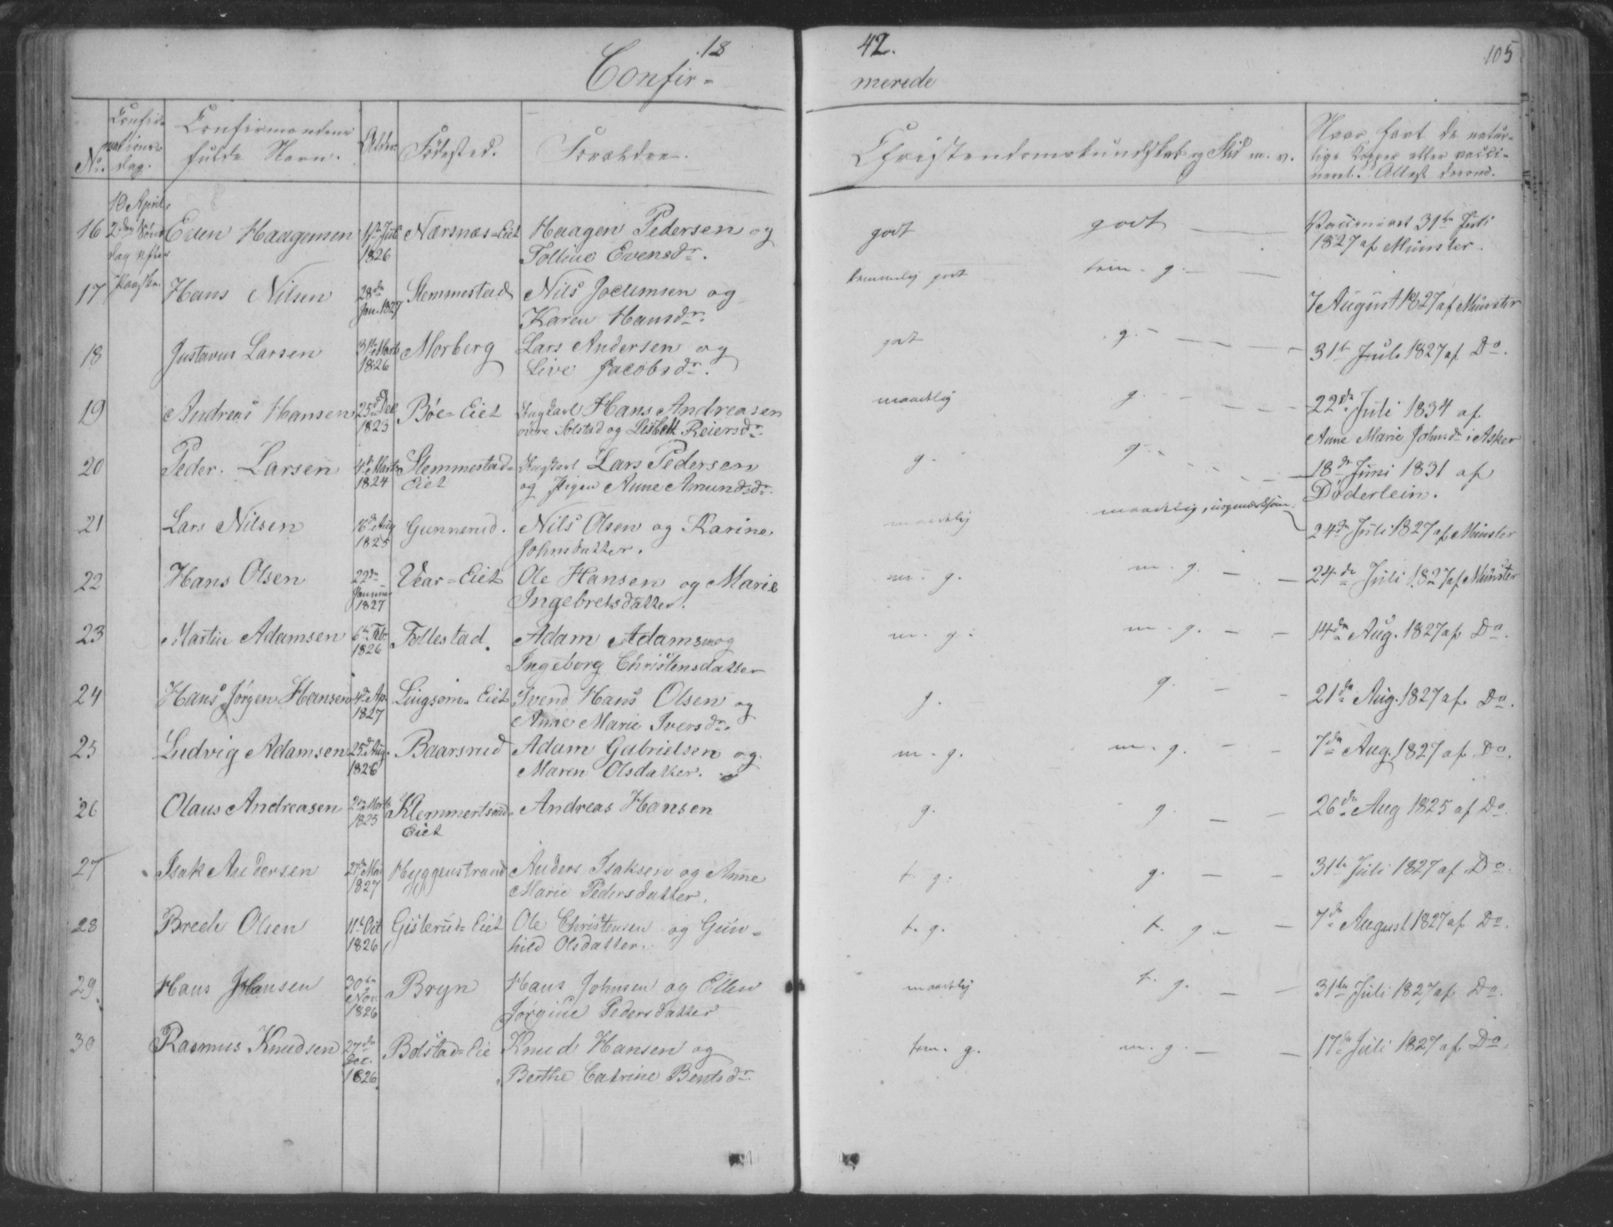 18
42.
105
Confir-
merede
No.
Confir-
mations-
dag.
Confirmandens
fulde Navn.
Alder
Fødested.
Forældre.
Christendomskundskab og Flid m. v.
Hvor havt de natur-
lige Kopper eller vacci-
neret. Attest derom.
10 April
2den Søn-
dag efter
Paaske
16 Even Haagensen
1826
Nærsnæs-Eiet
Haagen Pedersen og
Evensdr.
godt godt
Vaccineret 31te Juli
1827 af Münster.
17 Hans Nilsen
28de
Jan. 1827
Slemmestad
Nils Jocumsen og
Karen Hansdr.
temmelig godt tem. g.
7 August 1827 af Münster
18 Gustavus Larsen
31te Marts
1826
Morberg
Lars Andersen og
Live Jacobsdr.
godt g.
31te Juli 1827 af Do.
19 Andreas Hansen
25de Dec
1823
Bøe-Eiet
Ungkarl Hans Andreasen
Solstad og Lisbeth Reiersdr.
maadelig g.
22de Juli 1834 af
Anne Marie Johnsdr i Asker
20 Peder Larsen
4de Marts
1824
Slemmestad-
Eiet
Ungkarl Lars Pedersen
og Pigen Anne Amundsdr.
g. g.
18de Juni 1831 af
Døderlein.
21 Lars Nilsen
16de Aug
1825
Gunnerud.
Nils Olsen og Karine
Johnsdatter.
maadelig maadelig,
24de Juli 1827 af Münster
22 Hans Olsen
22de
Januar
1827
Vear-Eiet
Ole Hansen og Marie
Ingebretsdatter.
m. g. m. g.
24de Juli 1827 af Münster
23 Martin Adamsen
6te Feb.
1826
Follestad.
Adam Adamsen og
Ingeborg Christensdatter
m. g. m. g.
14de Aug. 1827 af Do.
24 Hans Jørgen Hansen
4de Ap
1827
Eiet
Svend Hans Olsen og
Anne Marie Iversdr.
g. g.
21de Aug. 1827 af Do.
25 Ludvig Adamsen
25de Aug.
1826
Baarsrud
Adam Gabrielsen og
Maren Olsdatter.
m. g. m. g.
7de Aug. 1827 af Do.
26 Olaus Andreasen
2den Marts
1825
Klemmertsrud-
Eiet
Andreas Hansen
g. g.
26de Aug 1825 af Do.
27 Isak Andersen
27de Mai
1827
Hyggenstrand
Anders Isaksen og Anne
Marie Pedersdatter.
t. g. g.
31te Juli 1827 af Do.
28 Brede Olsen
11te Oct
1826
Gisterud-Eiet
Ole Christensen og Gun-
hild Olsdatter.
t. g. t. g
7de August 1827 af Do.
29 Hans Hansen
30te
Nov.
1826
Bryn
Hans Johnsen og Ellen
Jørgine Pedersdatter
maadelig t. g.
31te Juli 1827 af Do.
30 Rasmus Knudsen
27de
Dec.
1826
Bolstad-Eie
Knud Hansen og
Berthe Catrine Bentsdr.
tem. g. m. g.
17de Juli 1827 af Do.